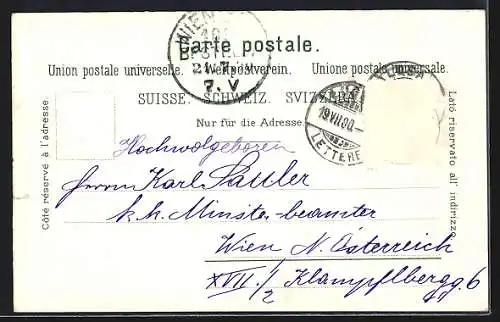 Carte postale.
Union postale universelle. Weltpostverein. Unione postale universale.
SUISSE. SCHWEIZ. SVIZZERA.
Nur für die Adresse.
Côté réservé à l'adresse
Lato riservato all' indirizzo
WIEN
7. V
19 VII 00
LETTERE
Hochwolgeboren
Herrn Karl Sattler
k. k. Minster-beamter
Wien N. Österreich
XVII./2 Klampflbergg. 6